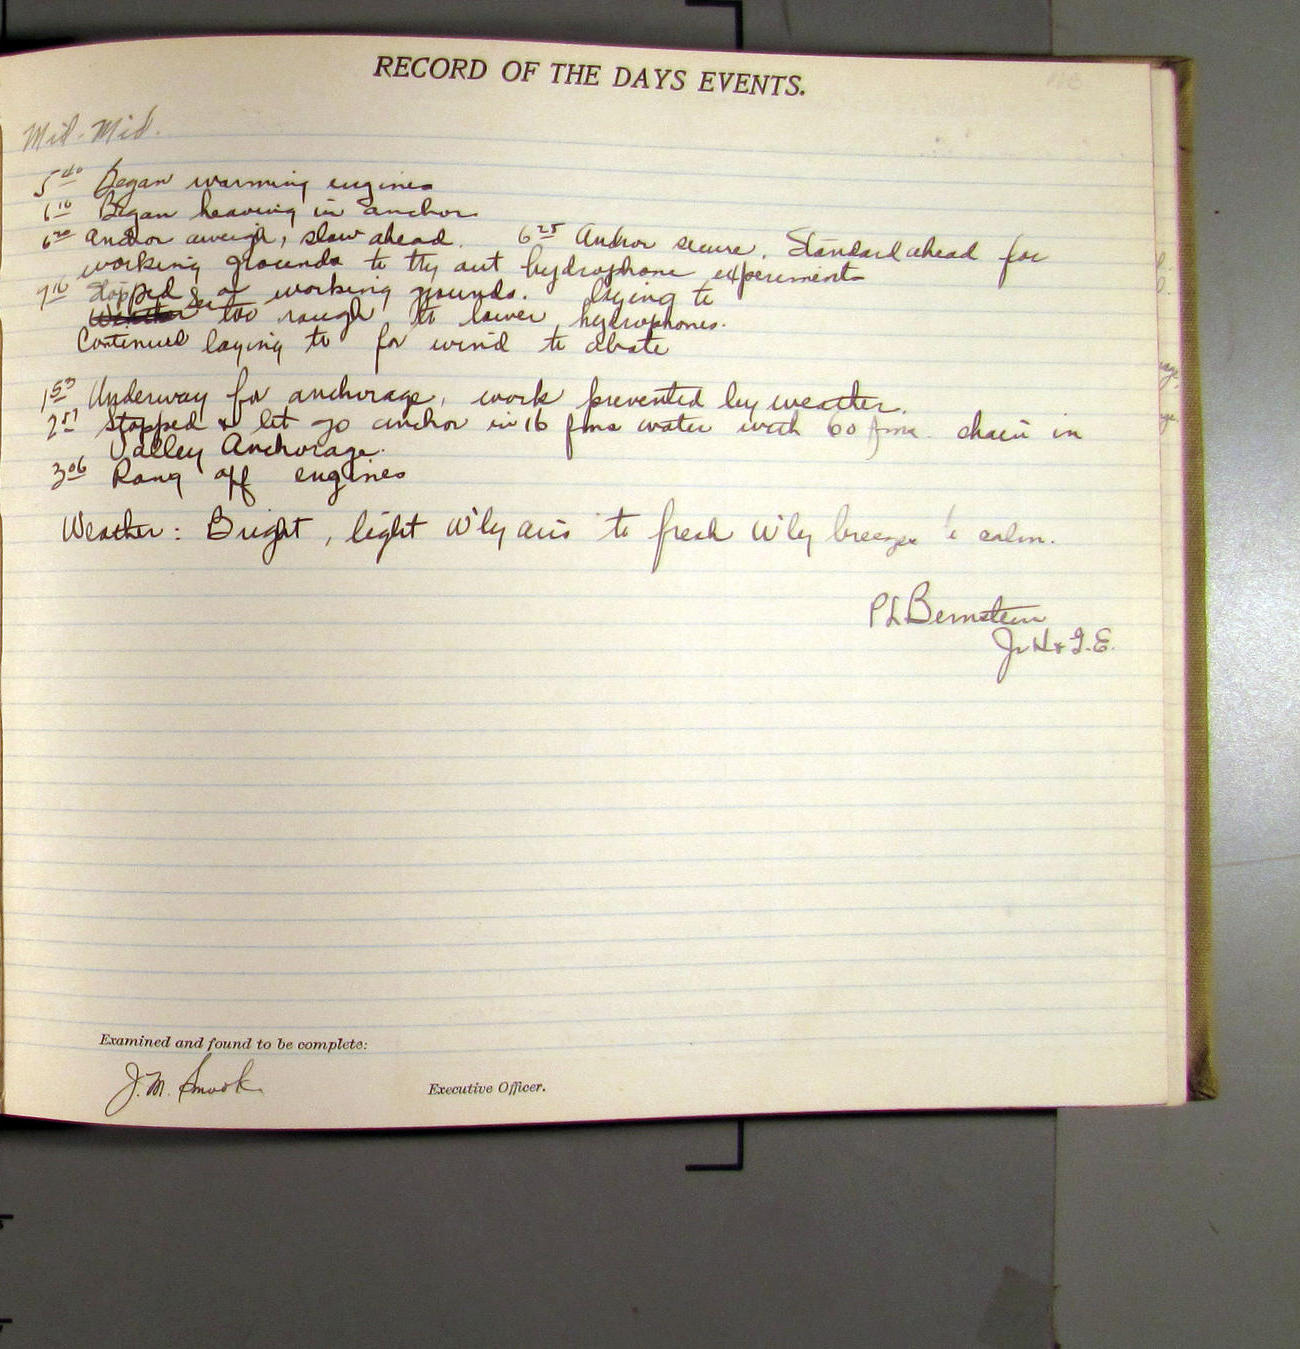 RECORD OF THE DAYS EVENTS.
Mid-Mid.
5 40 Began warming engines
6 10 Began heaving in anchor
6 20 Anchor aweigh, slow ahead. 6 25 Anchor secure. Standard ahead for
working grounds to try out hydrophone experiments
7 16 Stopped on working grounds. Laying to
Sea too rough to lower hydrophones.
Continued laying to for wind to abate
1 53 Underway for anchorage, work prevented by weather.
2 57 Stopped & let go anchor in 16 fms water with 60 fms chain in
Valley Anchorage.
3 06 Rang off engines
Weather: Bright, light W'ly airs to fresh W'ly breeze to calm.
P L Bernstein
Jr H & G.E.
Examined and found to be complete:
J. M. Smook
Executive Officer.